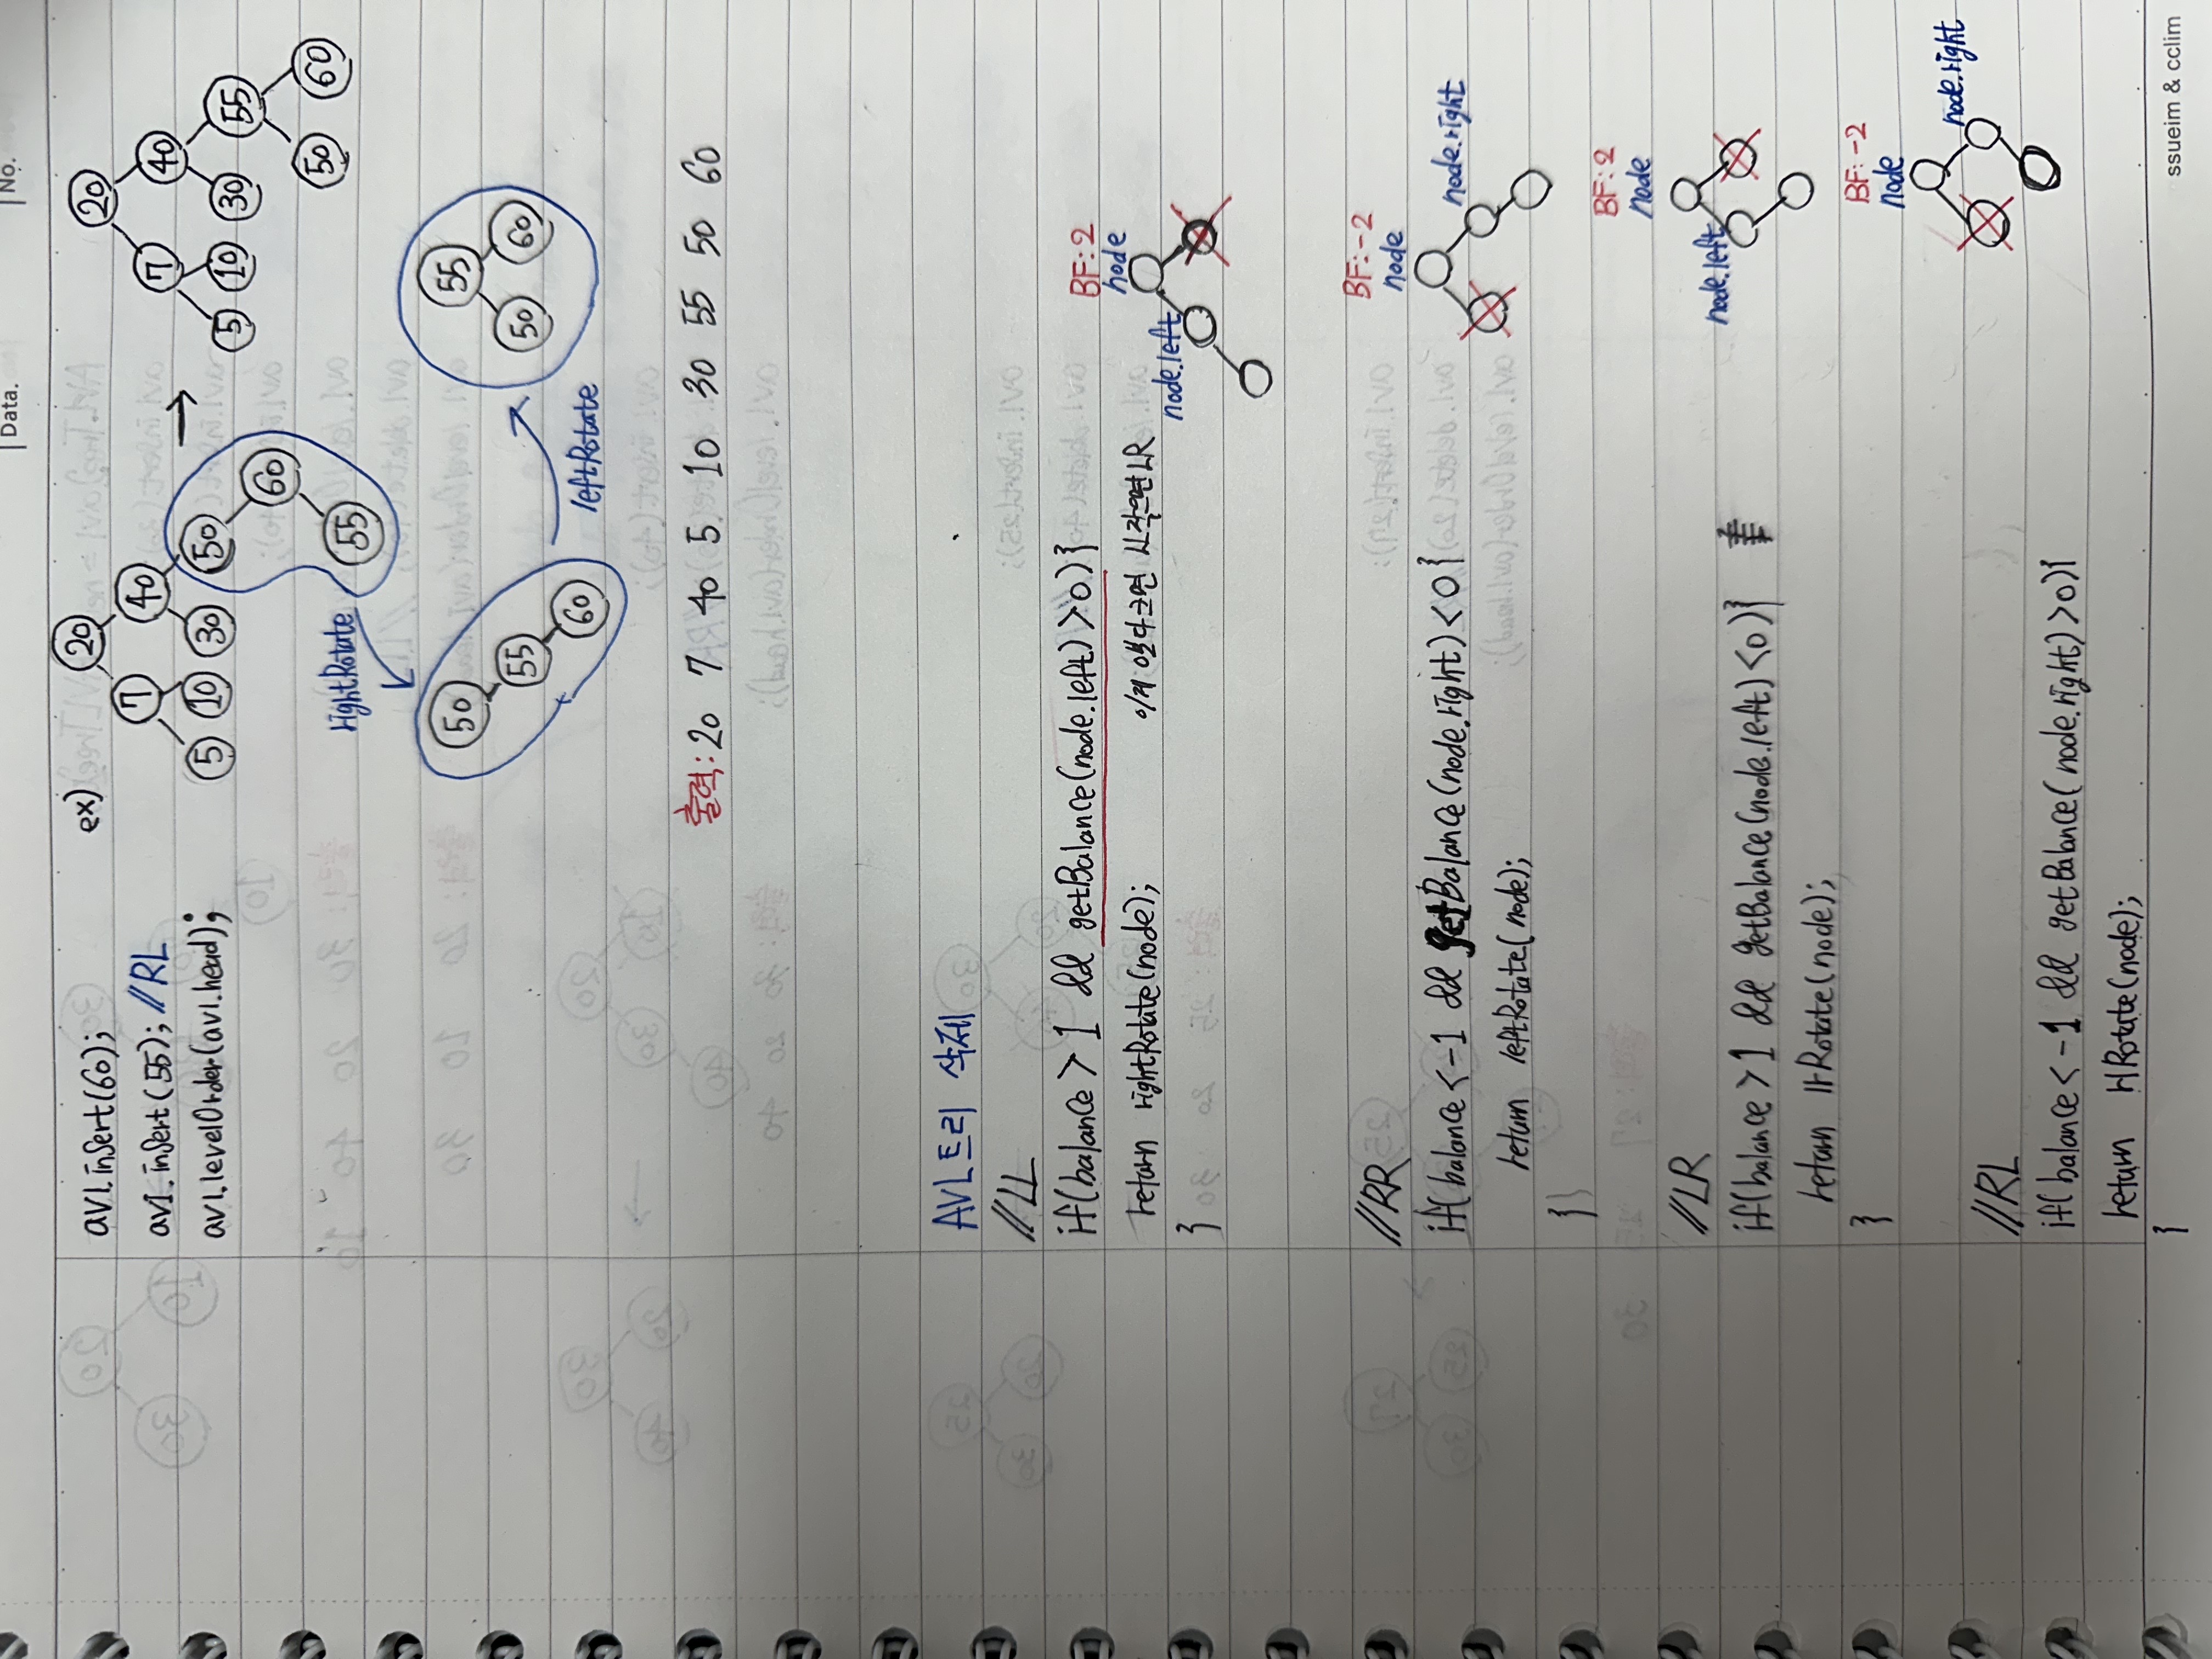 Data.
No.
avl.insert(60);
avl.insert(55); //RL
avl.levelOrder(avl.head);
ex)
20
7 40
5 10 30 50
60
55
→
20
7 40
5 10 30 55
50 60
rightRotate
50
55
60
leftRotate
55
50 60
출력: 20 7 40 5 10 30 55 50 60
AVL트리 삭제
//LL
if(balance > 1 && getBalance(node.left) > 0){
return rightRotate(node);
이게 0보다 크면 LL 작으면 LR
}
BF: 2
node
node.left
//RR
if(balance < -1 && getBalance(node.right) < 0{
return leftRotate(node);
}
BF: -2
node
node.right
//LR
if(balance > 1 && getBalance(node.left) < 0){
return lrRotate(node);
}
BF: 2
node
node.left
//RL
if(balance < -1 && getBalance(node.right) > 0){
return rlRotate(node);
}
BF: -2
node
node.right
ssueim & cclim